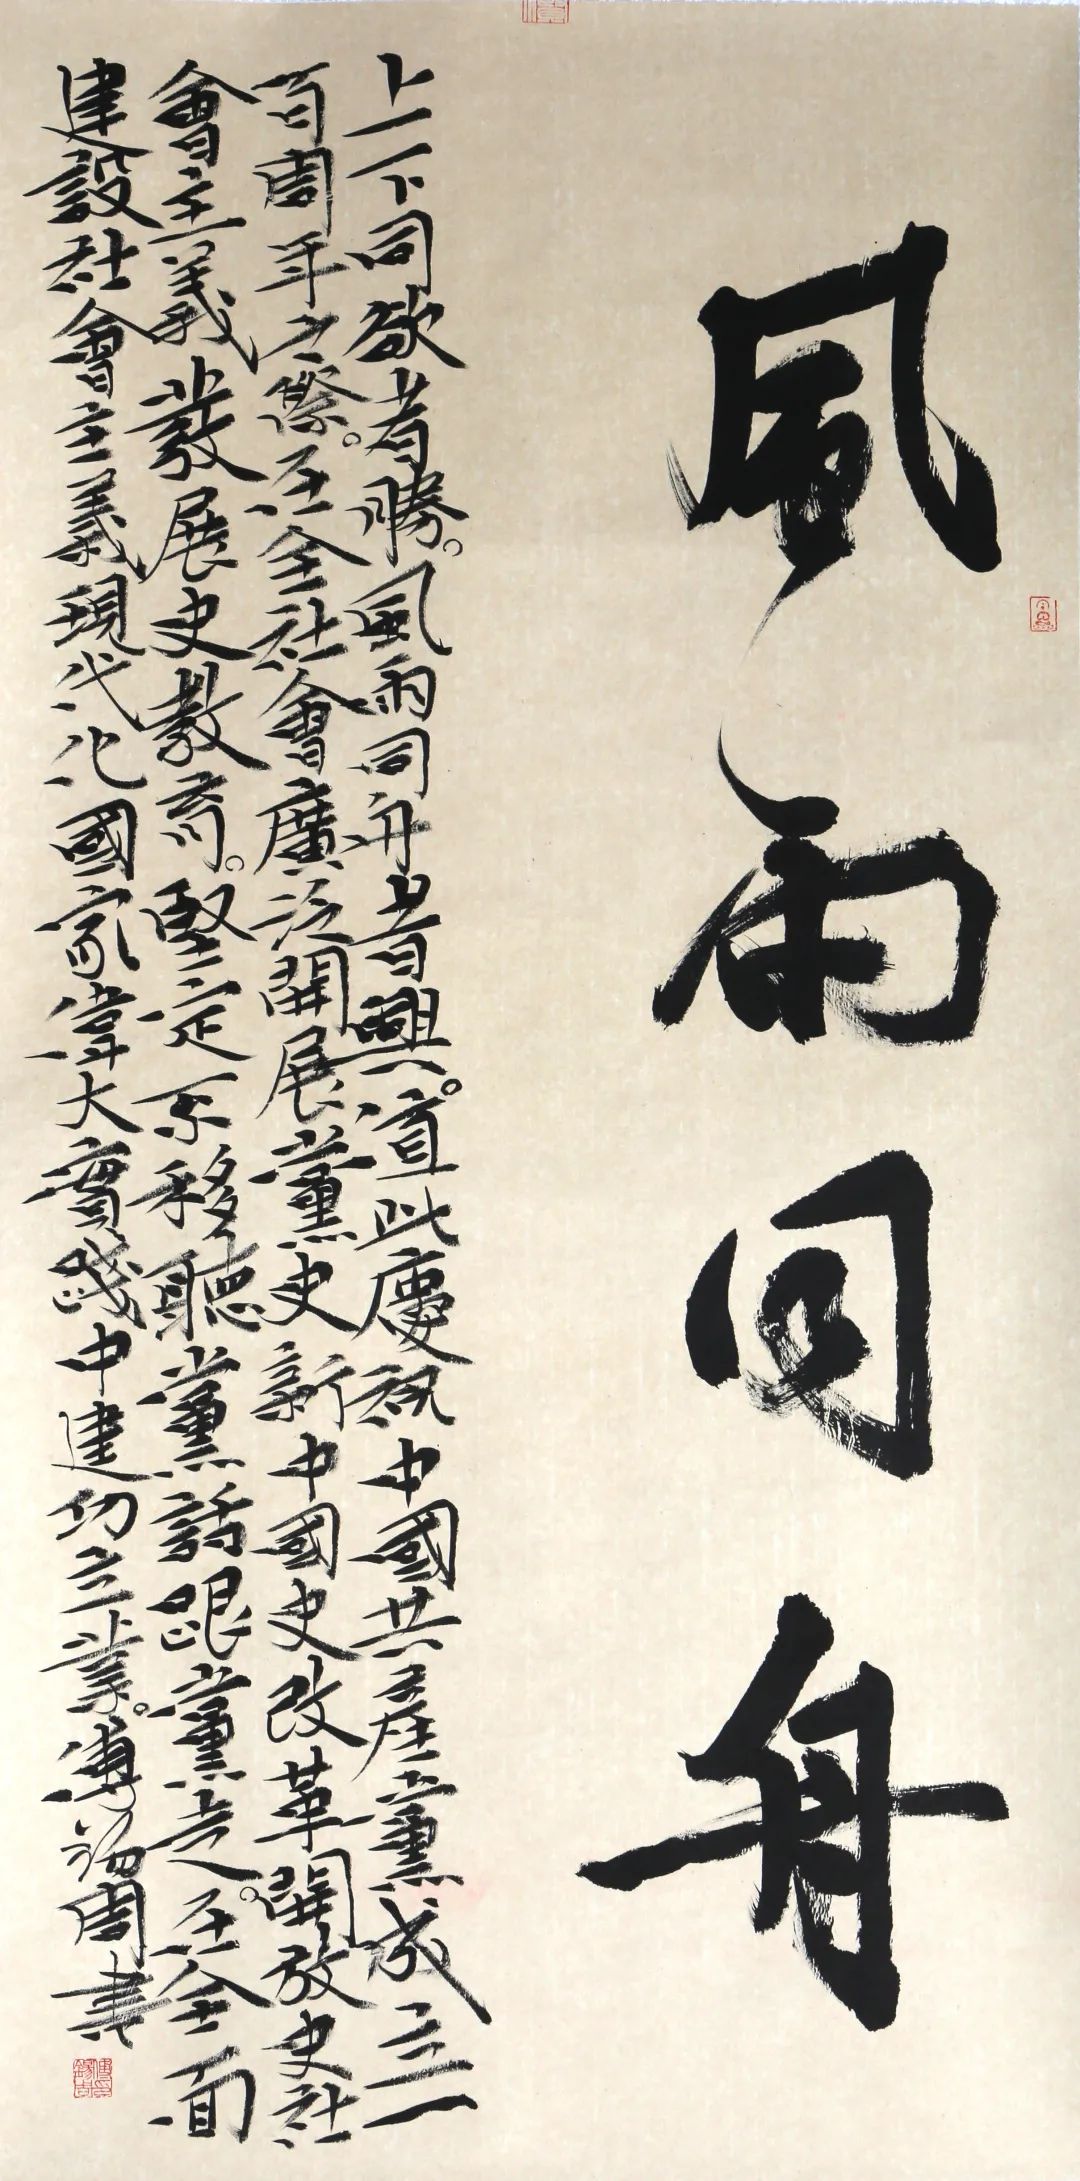 風雨同舟
上下同欲者勝。風雨同舟者興。值此慶祝中國共產黨成立一
百周年之際。在全社會廣泛開展黨史新中國史改革開放史社
會主義發展史教育。堅定不移聽黨話跟黨走。在全面
建設社會主義現代化國家偉大實踐中建功立業。傅周書